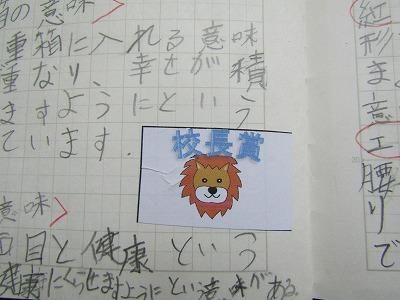 箱の意味>
重箱に入れる意味
重なり、幸せが積
ますようにという
ています.
校長賞
意味>
①目と健康という
健康にくらせますようにとい意味がある.
紅
形
ま
意
エ
腰
りで